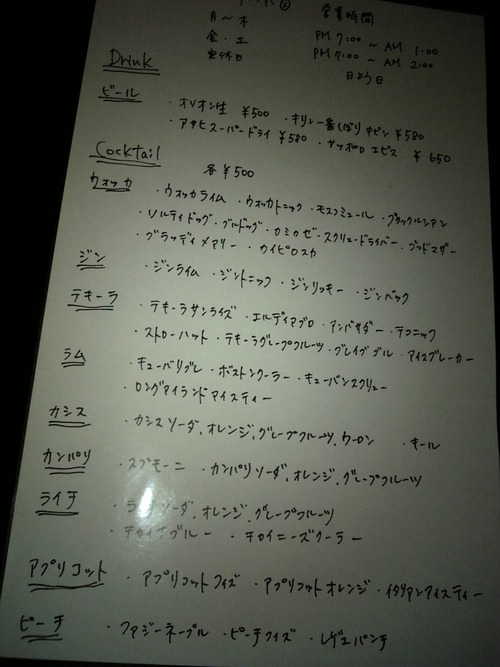 営業時間
月〜木 PM 7:00 〜 AM 1:00
金・土 PM 7:00 〜 AM 2:00
定休日 日よう日
Drink
ビール
・オリオン生 ¥500 ・キリン一番しぼり中ビン ¥580
・アサヒスーパードライ ¥580 ・サッポロ エビス ¥650
Cocktail
各¥500
ウォッカ ・ウォッカライム ・ウォッカトニック ・モスコミュール ・ブラックルシアン
・ソルティドッグ ・ブルドッグ ・カミカゼ ・スクリュードライバー ・ゴッドマザー
・ブラッディメアリー ・カイピロスカ
ジン ・ジンライム ・ジントニック ・ジンリッキー ・ジンバック
テキーラ ・テキーラサンライズ ・エルディアブロ ・アンバサダー ・テコニック
・ストローハット ・テキーラグレープフルーツ ・ブレイブブル ・アイスブレーカー
ラム ・キューバリブレ ・ボストンクーラー ・キューバンスクリュー
・ロングアイランドアイスティー
カシス ・カシスソーダ、オレンジ、グレープフルーツ、ウーロン ・キール
カンパリ ・スプモーニ ・カンパリソーダ、オレンジ、グレープフルーツ
ライチ ・ライチソーダ、オレンジ、グレープフルーツ
・チャイナブルー ・チャイニーズクーラー
アプリコット ・アプリコットフィズ ・アプリコットオレンジ ・イタリアンアイスティー
ピーチ ・ファジーネーブル ・ピーチフィズ ・レゲエパンチ